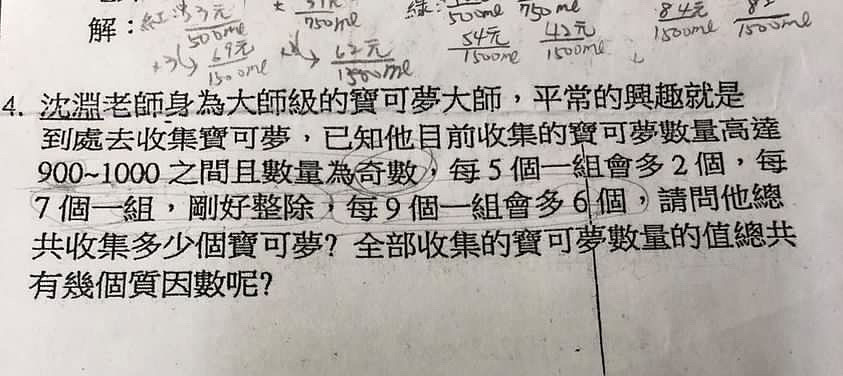 解：紅:23元/500ml 750ml 綠: 500ml 750ml 84元/1500ml 1500ml
×3 69元/1500ml ×2 62元/1500ml 54元/1500ml 42元/1500ml
4. 沈淵老師身為大師級的寶可夢大師，平常的興趣就是
到處去收集寶可夢，已知他目前收集的寶可夢數量高達
900~1000 之間且數量為奇數，每 5 個一組會多 2 個，每
7 個一組，剛好整除，每 9 個一組會多 6 個，請問他總
共收集多少個寶可夢? 全部收集的寶可夢數量的值總共
有幾個質因數呢?